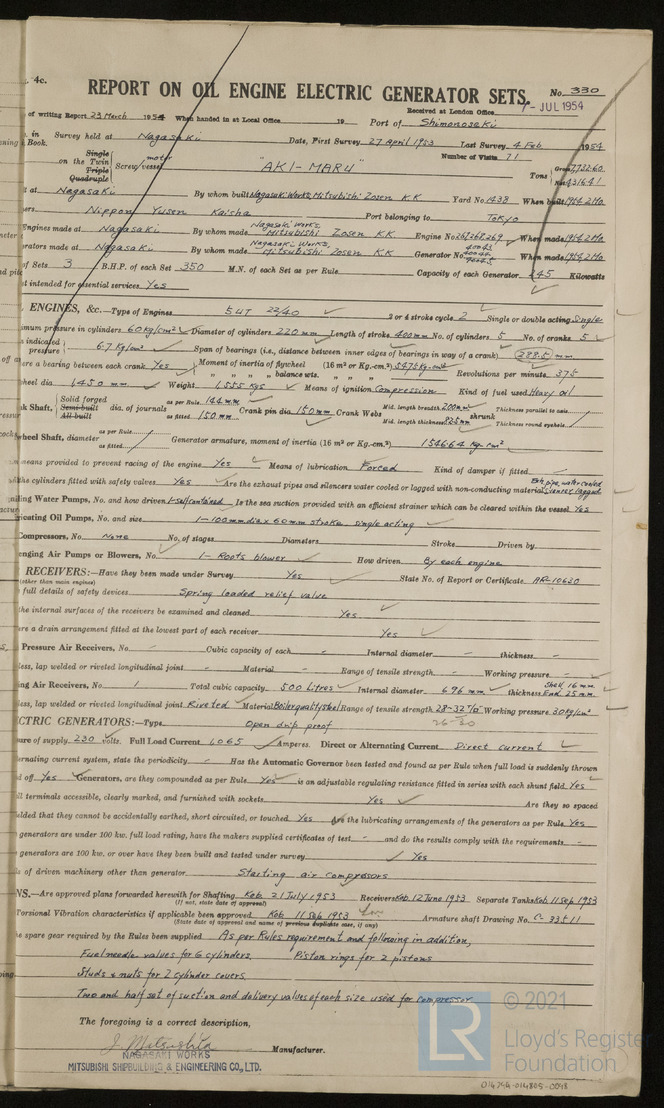 4c.
REPORT ON OIL ENGINE ELECTRIC GENERATOR SETS.
No. 330
Received at London Office - JUL 1954
of writing Report 23 March 1954 When handed in at Local Office 19 Port of Shimonoseki
in Survey held at Nagasaki Date, First Survey 27 April 1953 Last Survey 4 Feb 1954
Book. Number of Visits 71
on the Single Twin Triple Quadruple Screw vessel motor "AKI-MARU" Tons Gross Net
at Nagasaki By whom built Nagasaki Works, Mitsubishi Zosen K.K. Yard No. 1438 When built 1954 2 Mo
Nippon Yusen Kaisha Port belonging to Tokyo
Engines made at Nagasaki By whom made Nagasaki Works, Mitsubishi Zosen K.K. Engine No. 267,268,269 When made 1954 2 Mo
made at Nagasaki By whom made Nagasaki Works, Mitsubishi Zosen K.K. Generator No. When made 1954 2 Mo
of Sets 3 B.H.P. of each Set 350 M.N. of each Set as per Rule Capacity of each Generator 245 Kilowatts
intended for essential services Yes
ENGINES, &c.—Type of Engines 5UT 22/40 2 or 4 stroke cycle 2 Single or double acting Single
pressure in cylinders 60 kg/cm² Diameter of cylinders 220 mm Length of stroke 400mm No. of cylinders 5 No. of cranks 5
indicated pressure 6.7 Kg/cm² Span of bearings (i.e., distance between inner edges of bearings in way of a crank) 288.5 mm
a bearing between each crank Yes Moment of inertia of flywheel (16 m² or Kg.-cm.²) Revolutions per minute 375
" " " balance wts. " " "
wheel dia. 1450 mm Weight 1555 Kgs Means of ignition Compression Kind of fuel used Heavy oil
Shaft, Solid forged Semi built All built dia. of journals as per Rule 144mm as fitted 150mm Crank pin dia. 150mm Crank Webs Mid. length breadth 200mm Mid. length thickness shrunk Thickness parallel to axis Thickness round eyehole
Shaft, diameter as per Rule as fitted Generator armature, moment of inertia (16 m² or Kg.-cm.²) 154664 Kg-cm²
means provided to prevent racing of the engine Yes Means of lubrication Forced Kind of damper if fitted -
the cylinders fitted with safety valves Yes Are the exhaust pipes and silencers water cooled or lagged with non-conducting material Exh. pipe water cooled Silencer lagged
Water Pumps, No. and how driven 1-self contained Is the sea suction provided with an efficient strainer which can be cleared within the vessel Yes
Oil Pumps, No. and size 1-100mm dia x 60mm stroke single acting
Compressors, No. None No. of stages Diameters Stroke Driven by
Air Pumps or Blowers, No. 1 - Roots blower How driven By each engine
RECEIVERS:—Have they been made under Survey Yes State No. of Report or Certificate AR-10630
(other than main engines)
full details of safety devices Spring loaded relief valve
the internal surfaces of the receivers be examined and cleaned Yes
a drain arrangement fitted at the lowest part of each receiver Yes
Pressure Air Receivers, No. - Cubic capacity of each - Internal diameter - thickness -
lap welded or riveted longitudinal joint - Material - Range of tensile strength - Working pressure -
Air Receivers, No. 1 Total cubic capacity 500 Litres Internal diameter 696 mm thickness Shell 16 mm End 25 mm
lap welded or riveted longitudinal joint Riveted Material Boiler quality steel Range of tensile strength 28-32 Working pressure 30kg/cm²
26-30
GENERATORS:—Type Open drip proof
of supply 230 volts. Full Load Current 1065 Amperes. Direct or Alternating Current Direct current
current system, state the periodicity - Has the Automatic Governor been tested and found as per Rule when full load is suddenly thrown
off Yes Generators, are they compounded as per Rule Yes is an adjustable regulating resistance fitted in series with each shunt field Yes
terminals accessible, clearly marked, and furnished with sockets Yes Are they so spaced
that they cannot be accidentally earthed, short circuited, or touched Yes Are the lubricating arrangements of the generators as per Rule Yes
generators are under 100 kw. full load rating, have the makers supplied certificates of test - and do the results comply with the requirements -
generators are 100 kw. or over have they been built and tested under survey Yes
of driven machinery other than generator Starting air compressors
—Are approved plans forwarded herewith for Shafting Kob. 21 July 1953 Receivers Kob. 12 June 1953 Separate Tanks Kob. 11 Sep 1953
(If not, state date of approval)
Torsional Vibration characteristics if applicable been approved Kob. 11 Sep 1953 Armature shaft Drawing No. C-33511
(State date of approval and name of previous duplicate case, if any)
spare gear required by the Rules been supplied As per Rules requirement and following in addition,
Fuel needle valves for 6 cylinders, Piston rings for 2 pistons
Studs & nuts for 2 cylinder covers,
Two and half set of suction and delivery valves of each size used for compressor
The foregoing is a correct description,
J. Matsushita Manufacturer.
NAGASAKI WORKS
MITSUBISHI SHIPBUILDING & ENGINEERING CO., LTD.
LR
© 2021
Lloyd's Register
Foundation
014794-014805-0093